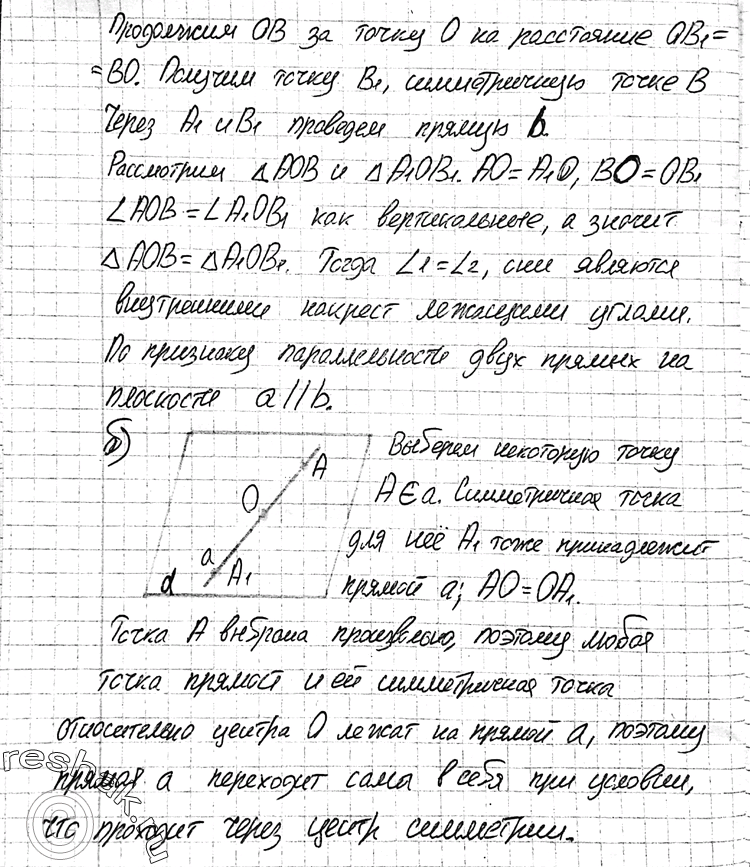 Продолжим OB за точку O на расстояние OB₁=
=BO. Получим точку B₁, симметричную точке B
Через A₁ и B₁ проведем прямую b.
Рассмотрим △AOB и △A₁OB₁. AO=A₁O, BO=OB₁
∠AOB=∠A₁OB₁ как вертикальные, а значит
△AOB=△A₁OB₁. Тогда ∠1=∠2, они являются
внутренними накрест лежащими углами.
По признаку параллельности двух прямых на
плоскости a||b.
б)
A
O
a
A₁
α
Выберем некоторую точку
A∈a. Симметричная точка
для неё A₁ тоже принадлежит
прямой a; AO=OA₁.
Точка A выбрана произвольно, поэтому любая
точка прямой и ей симметричная точка
относительно центра O лежат на прямой a, поэтому
прямая a переходит сама в себя при условии,
что проходит через центр симметрии.
reshak.ru